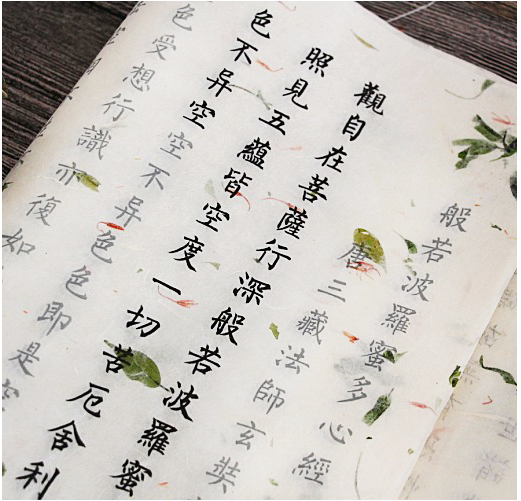 般若波羅蜜多心經
唐三藏法師玄奘
觀自在菩薩行深般若波羅蜜
照見五蘊皆空度一切苦厄舍利
色不异空空不异色色即是空
色受想行識亦復如